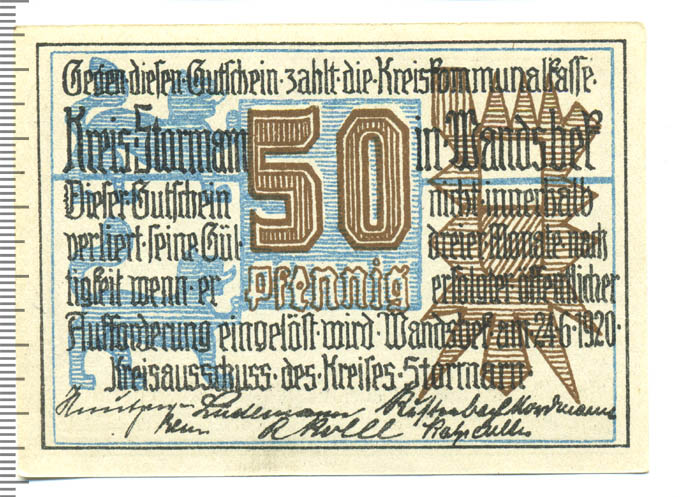 Gegen·diesen·Gutschein·zahlt·die·Kreiskommunalkasse·
Kreis·Stormarn 50 in·Wandsbek
Dieser·Gutschein nicht·innerhalb
verliert·seine·Gül- dreier·Monate·nach
tigkeit·wenn·er Pfennig erfolgter·öffentlicher
Aufforderung·eingelöst·wird·Wandsbek·am·24·6·1920·
Kreisausschuss·des·Kreises·Stormarn·
Lüdemann